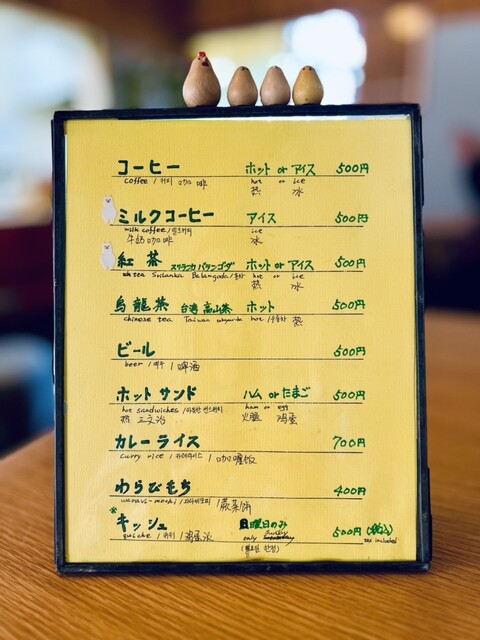 コーヒー ホット or アイス 500円
coffee / 커피 咖啡 hot or ice
热 冰
ミルクコーヒー アイス 500円
milk coffee / 밀크커피 ice
牛奶咖啡 冰
紅茶 スリランカ バランゴダ ホット or アイス 500円
tea Srilanka Balangoda / 홍차 hot or ice
热 冰
烏龍茶 台湾 高山茶 ホット 500円
chinese tea Taiwan hot / 우롱차 热
ビール 500円
beer / 맥주 / 啤酒
ホットサンド ハム or たまご 500円
hot sandwiches / ham or egg
热 三文治 火腿 鸡蛋
カレーライス 700円
curry rice / 카레라이스 / 咖喱饭
わらびもち 400円
warabi-mochi / 와라비모찌 / 蕨菜饼
※
キッシュ 日曜日のみ 500円 (税込)
quiche / 키쉬 / only Sunday tax included
(일요일 한정)